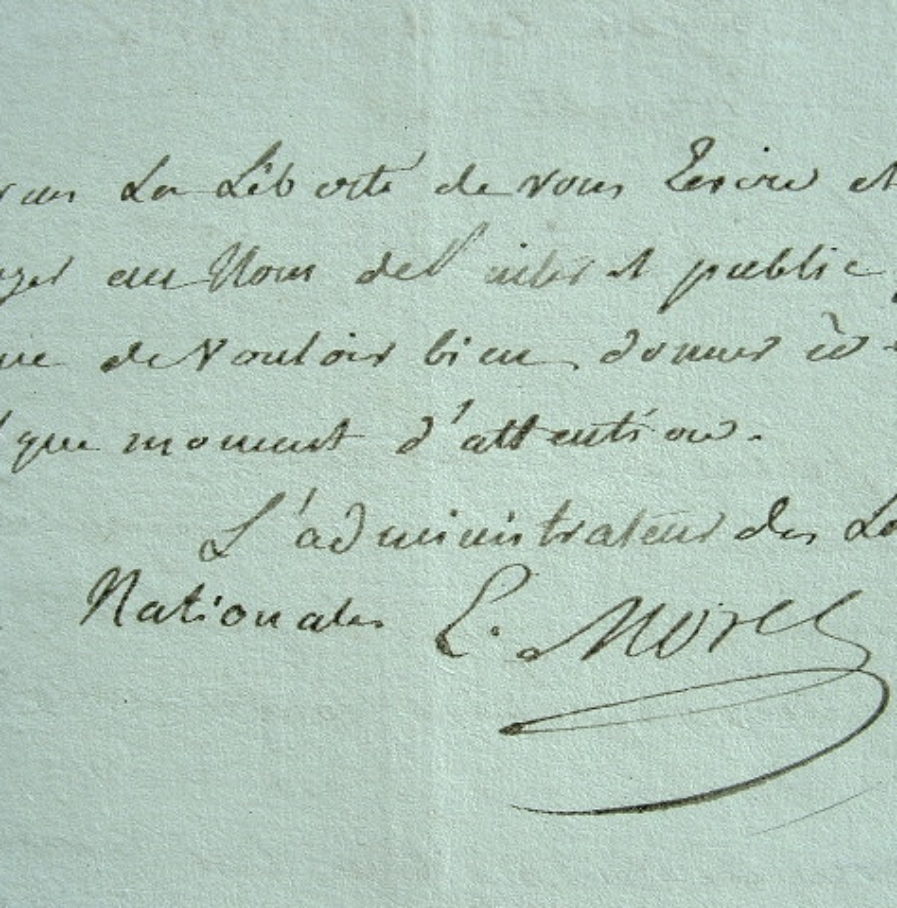 La Liberté de vous Ecrire et
au Nom de l'interet public
de vouloir bien donner à
que moment d'attention.
L'administrateur des
Nationales L. Morel